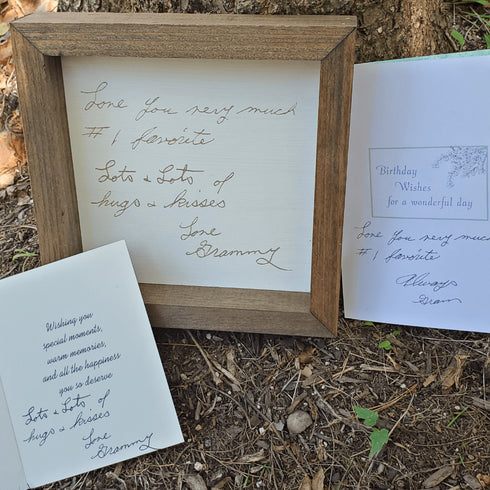 Love You very much
# 1 favorite
Lots & Lots of
hugs & kisses
Love
Grammy
Birthday
Wishes
for a wonderful day
Love You very much
# 1 favorite
Always
Gram
Wishing you
special moments,
warm memories,
and all the happiness
you so deserve
Lots & Lots of
hugs & kisses
Love
Grammy